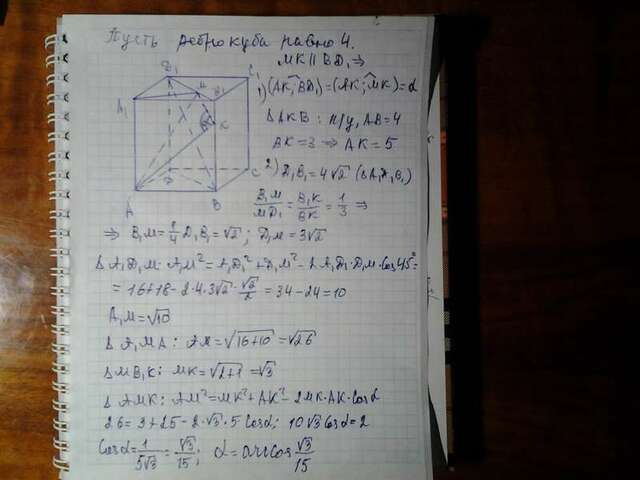 Пусть ребро куба равно 4.
MK || BD₁ ⇒
1) (AK, BD₁) = (AK; MK) = α
Δ AKB: п/у, AB = 4
BK = 3 ⇒ AK = 5
2) D₁B₁ = 4√2 (Δ A₁D₁B₁)
B₁M/MD₁ = B₁K/BK = 1/3 ⇒
⇒ B₁M = 1/4 D₁B₁ = √2; D₁M = 3√2
Δ A₁D₁M: A₁M² = A₁D₁² + D₁M² - 2A₁D₁·D₁M·cos45° =
= 16+18-2·4·3√2·√2/2 = 34-24 = 10
A₁M = √10
Δ A₁MA: AM = √(16+10) = √26
Δ MB₁K: MK = √(2+1) = √3
Δ AMK: AM² = MK² + AK² - 2MK·AK·cosα
26 = 3+25-2·√3·5 cosα; 10√3 cosα = 2
cosα = 1/5√3 = √3/15; α = arccos √3/15
D₁
C₁
M
B₁
A₁
K
D
C
A
B